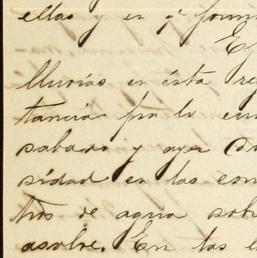 ellas y en q' form
Ef
lluvias en ésta re
tancia por lo
sabado y ayer
sidad en las con
tros de agua sob
asolve. En las